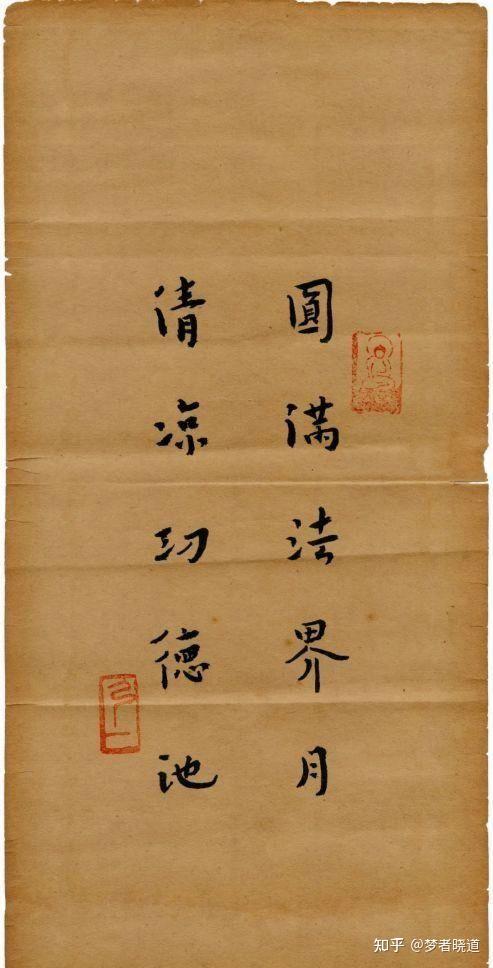 圓滿法界月
清涼功德池
弘一
知乎 @梦者晓道